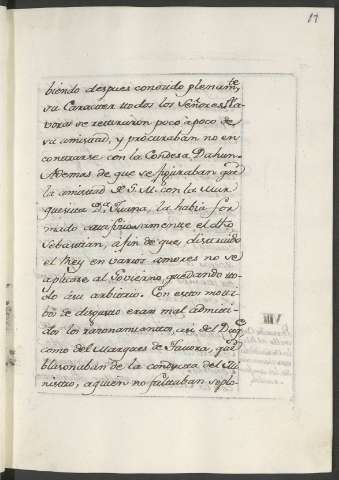 17
biendo despues conocido plenam.te
su Caracter todos los Señores Ta-
voras se retiraron poco à poco de
su amistad, y procuraban no en
contrarse con la Condesa Dahun.
Ademas de que se figuraban que
la amistad de S. M. con la Mar
quesita D.a Juana, la habia for
mado artificiosamente el dho
Sebastian, afin de que, distraido
el Rey en varios amores no se
aplicare al Govierno, quedando to-
do à su arbitrio. Con estos moti-
bos de disgusto eran mal admiti-
dos los razonamientos, asi del Duq.e
como del Marques de Tavora, que
blasonaban de la conducta del Mi
nistro, aquien no faltaban soplo-
VIII